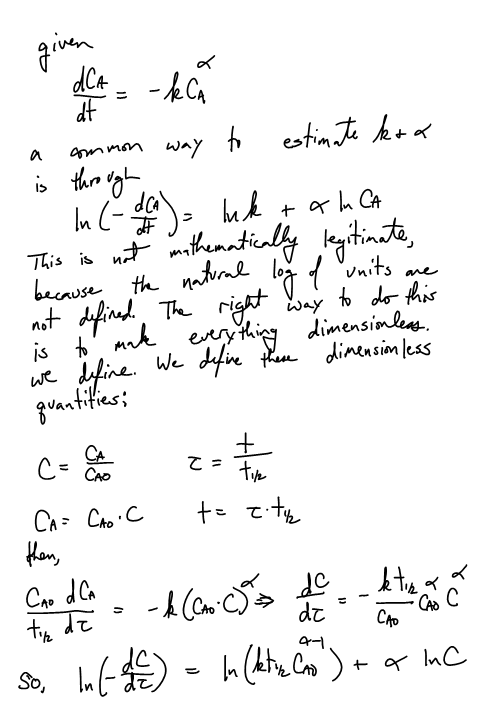 given
dCA/dt = -k CA^α
a common way to estimate k + α
is through
ln(- dCA/dt) = ln k + α ln CA
This is not mathematically legitimate,
because the natural log of units are
not defined. The right way to do this
is to make everything dimensionless.
we define. We define these dimensionless
quantities:
C = CA/CA0 τ = t/t1/2
CA = CA0 · C t = τ · t1/2
then,
CA0 dCA / t1/2 dτ = -k (CA0 · C)^α ⇒ dC/dτ = - k t1/2 / CA0 CA0^α C^α
So, ln(- dC/dτ) = ln(k t1/2 CA0^α-1) + α ln C